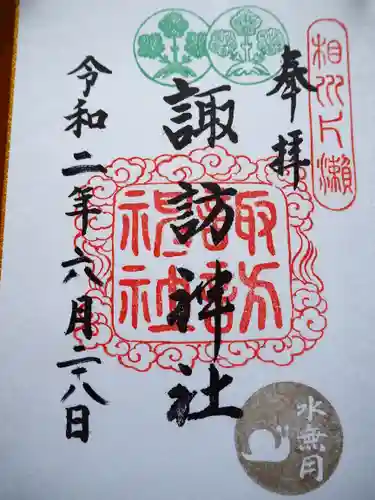 相州片瀬
奉拝
諏訪神社
諏訪神社
令和二年六月二十八日
水無月